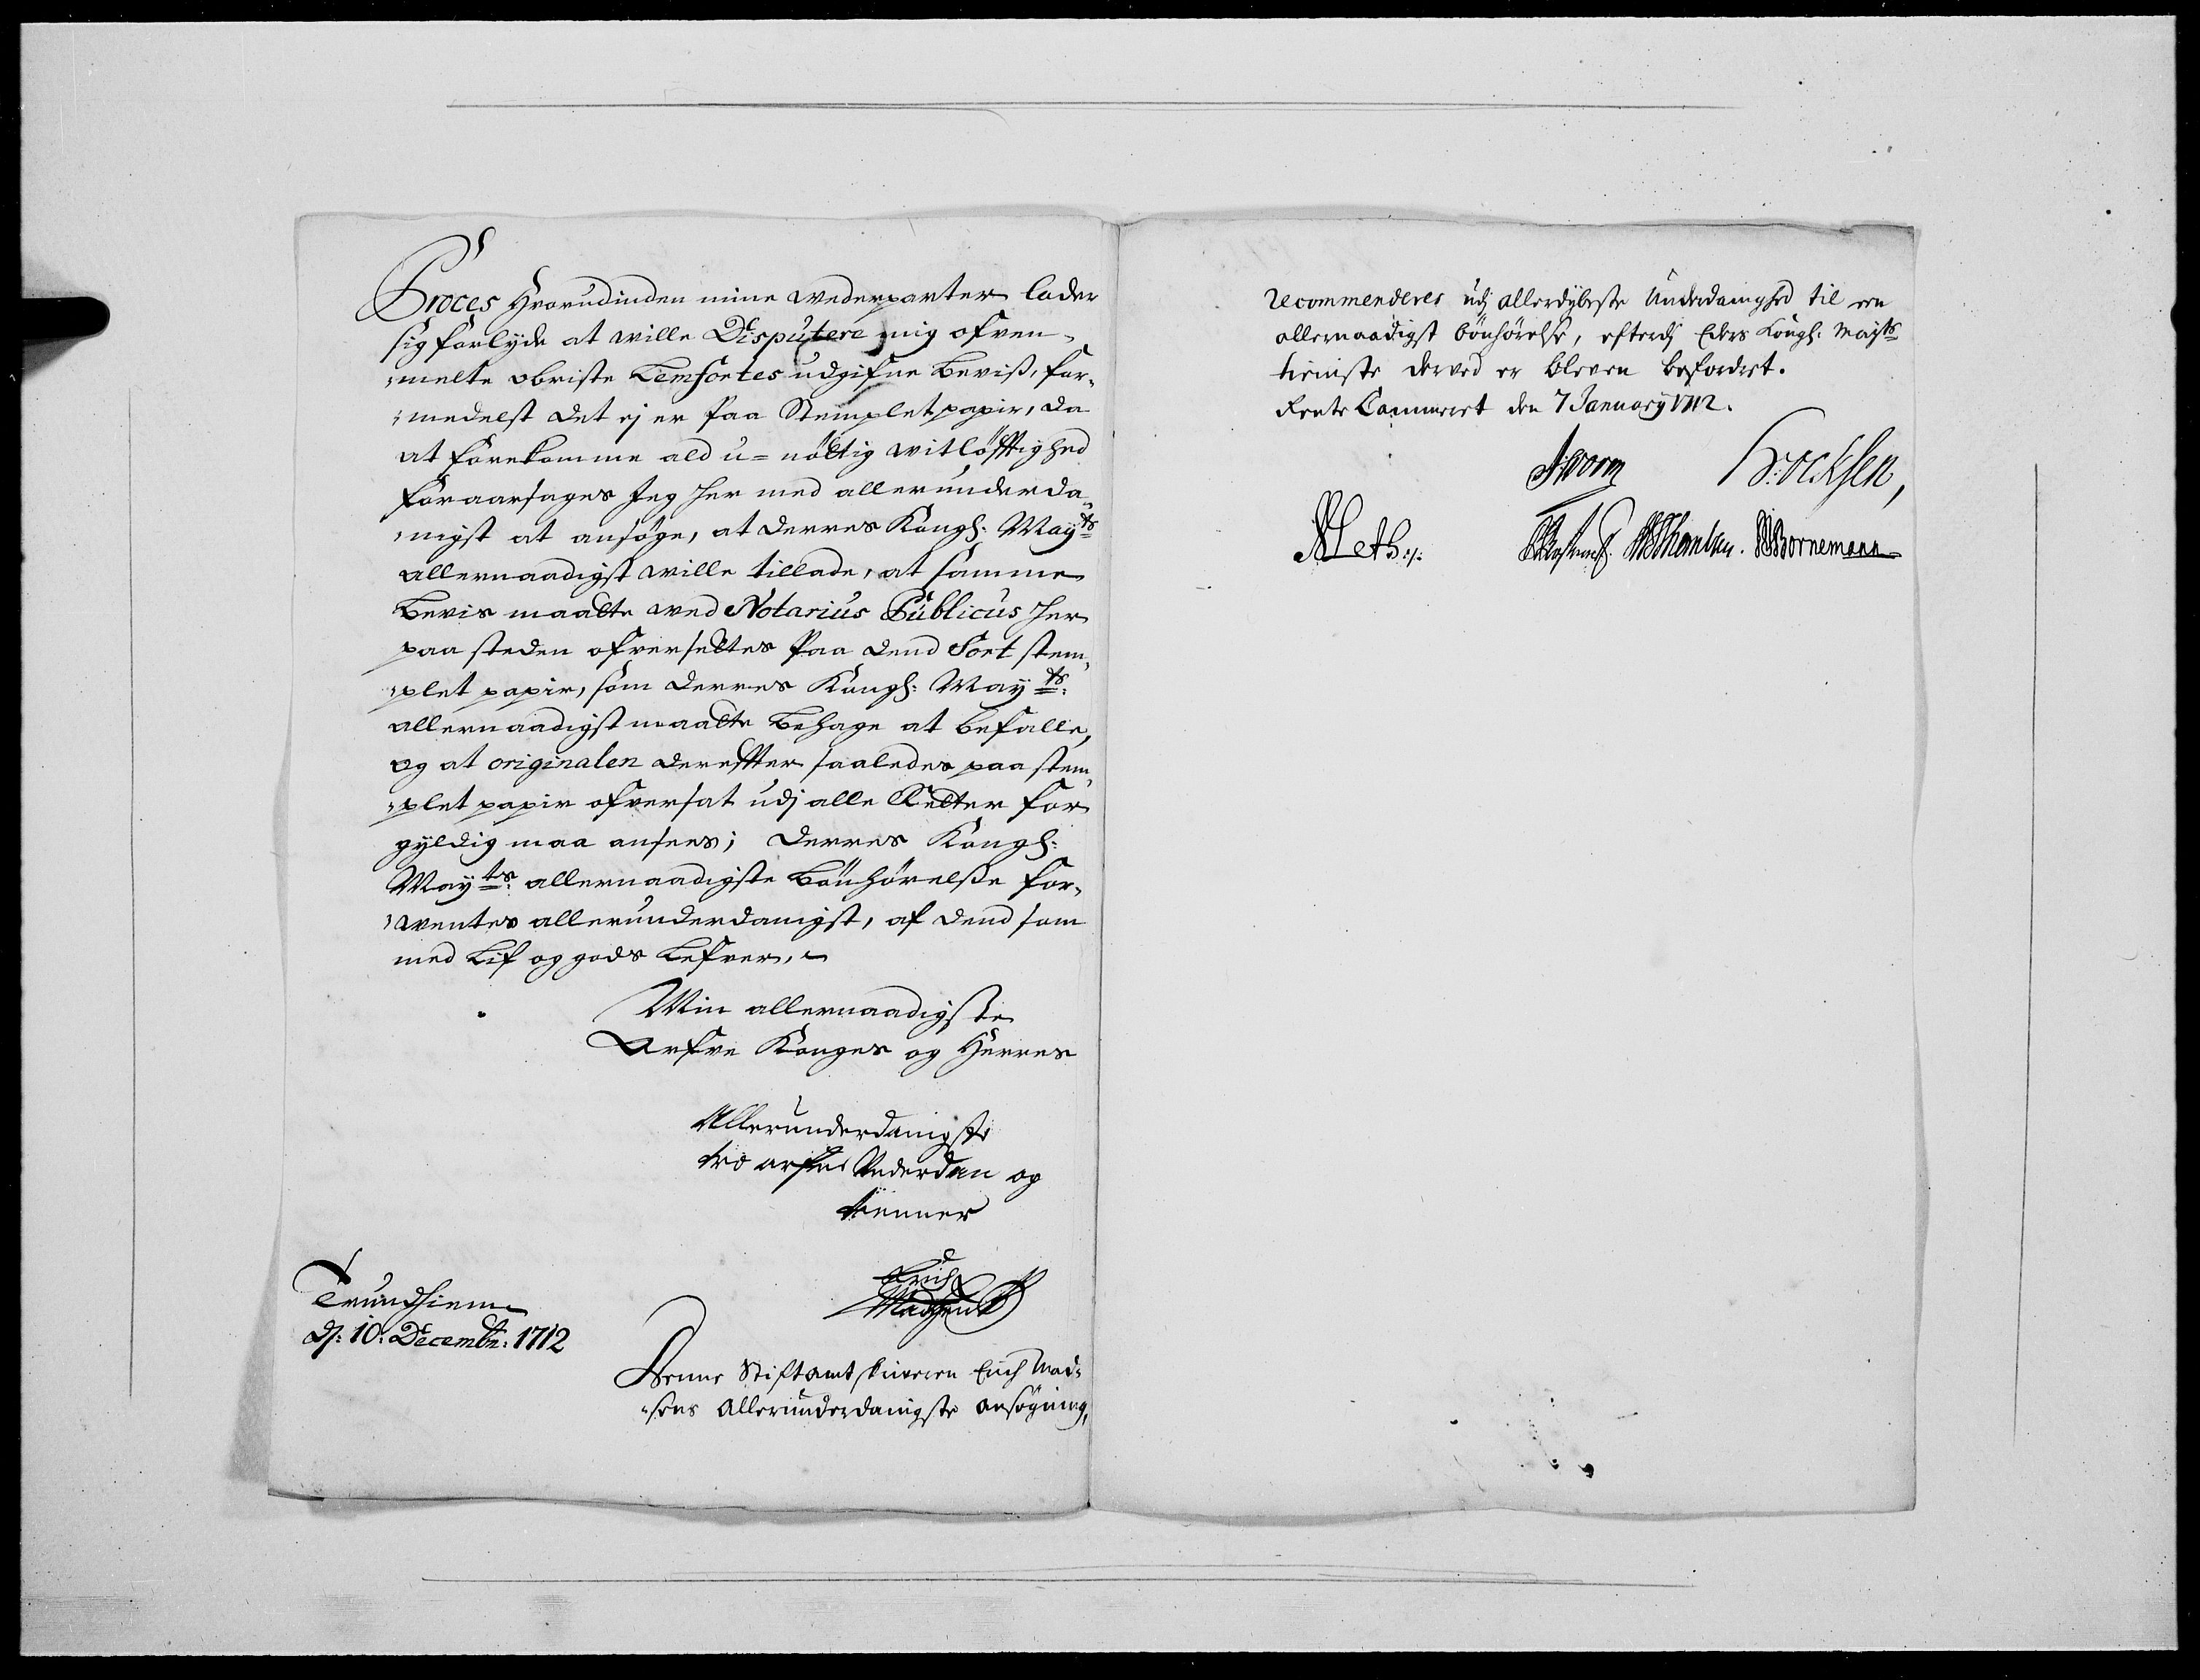 Proces Hvorudinden mine wederparter lader
sig forlyde at wille Disputere mig ofven-
melte obriste Lemfortes udgifne Beviß, for-
medelst det ej er paa Stemplet papir, da
at forekomme ald u-nöttig witlöfftighed
foraarsages Jeg her med allerunderda-
nigst at ansöge, at Derres Kongl: Mayts
allernaadigst wille tillade, at samme
Bevis maatte wed Notarius Publicus her
paa steden ofversettes paa dend Sort stem-
plet papir, som Derres Kongl: Mayts:
allernaadigst maatte Behage at befalle,
og at originalen derefter saaledes paa stem-
plet papir ofversat udj alle Retter for
gyldig maa ansees; Derres Kongl:
Mayts: allernaadigste Bönhörelße for-
wentes allerunderdanigst, af dend som
med Lif og gods Lefver,
Min allernaadigste
Arfve Konges og Herres
Allerunderdanigste
tro arfve Underdan og
tienner
Erich
Madsen
Trundhiem
dj: 10: Decembr: 1712
Denne Stiftamtskriveren Erich Mad-
sens Allerunderdanigste ansögning,
recommenderes udj allerdybeste Underdanighed til een
allernaadigst bönhörelse, efterdj Eders Kongl: Mayts
tieniste derved er bleven befordret.
Rente Cammeret den 7 January 1712.
JWorm
Bornemann